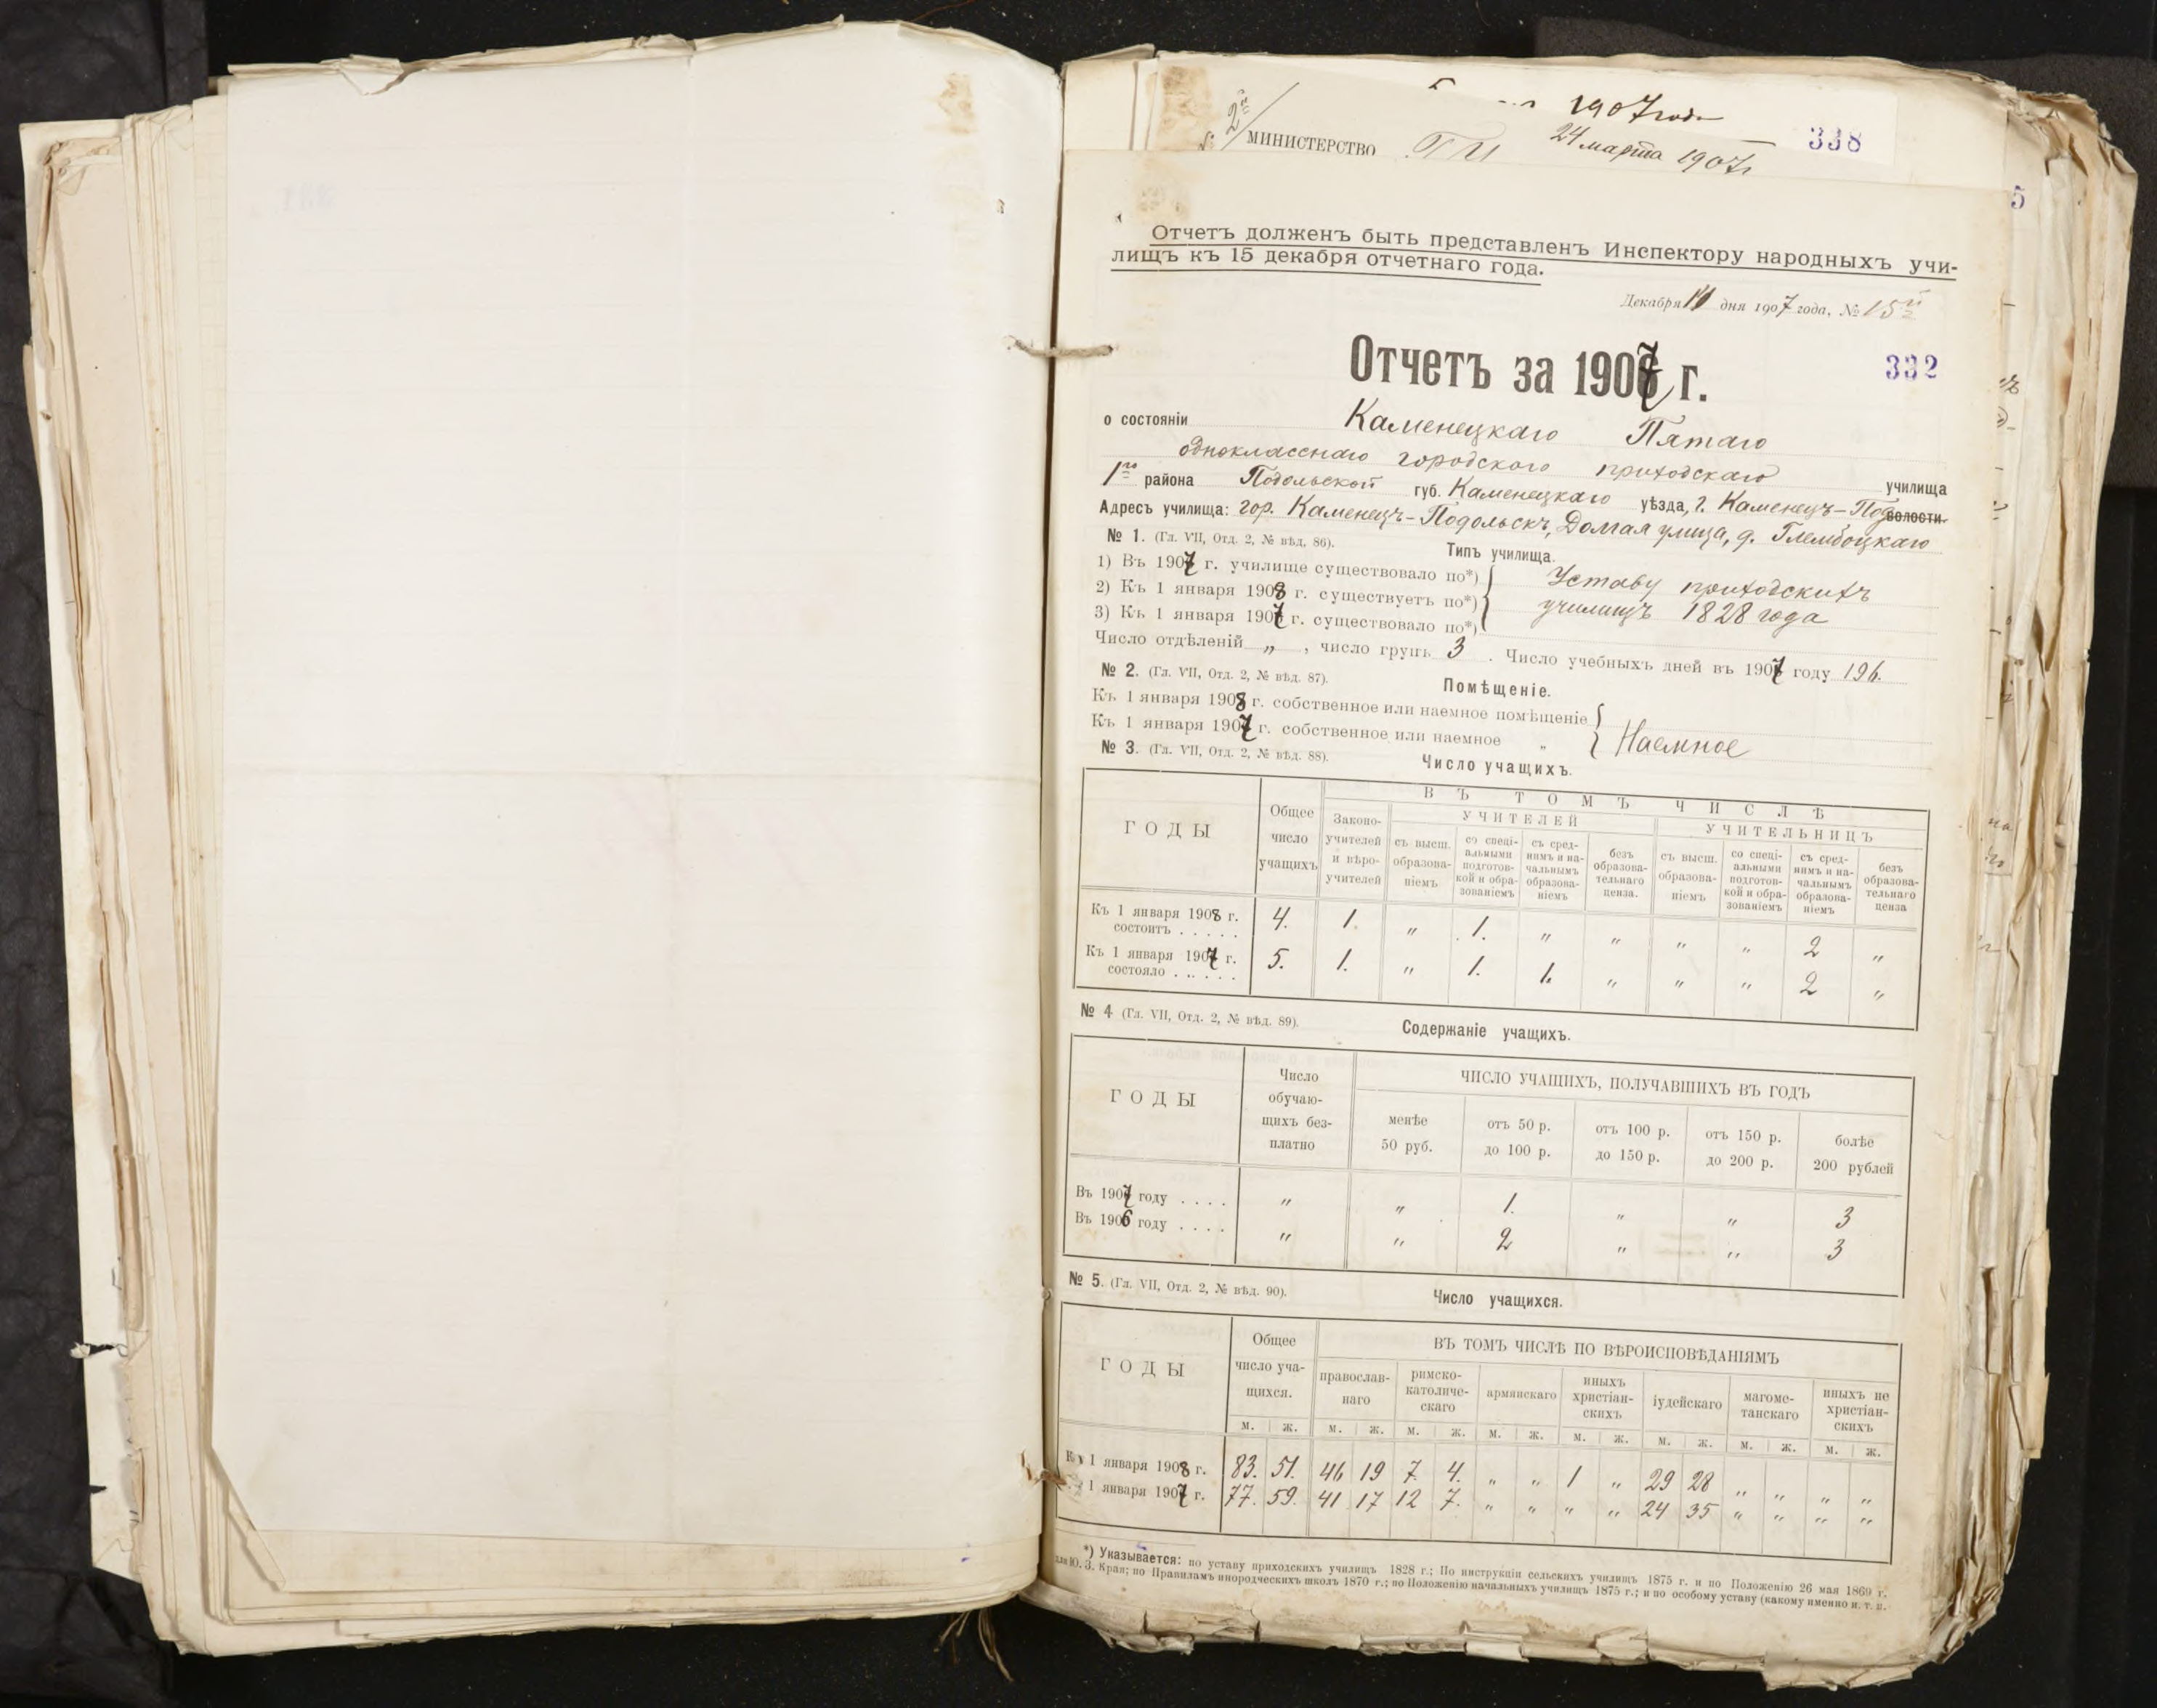 1907 года
24 марта 1907 г.
338
МИНИСТЕРСТВО
5
Отчетъ долженъ быть представленъ Инспектору народныхъ учи-
лищъ къ 15 декабря отчетнаго года.
Декабря дня 1907 года, № 15й
Отчетъ за 1907 г.
332
о состоянiи Каменецкаго Пятаго
однокласснаго городского приходскаго
училища
1го района Подольской губ. Каменецкаго уѣзда, г. Каменецъ-Под волости
Адресъ училища: гор. Каменецъ-Подольскъ, Долгая улица, д. Глембоцкаго
№ 1. (Гл. VII, Отд. 2, № вѣд. 86). Типъ училища.
1) Въ 1907 г. училище существовало по*) Уставу приходскихъ
2) Къ 1 января 1908 г. существуетъ по*) училищъ 1828 года
3) Къ 1 января 1907 г. существовало по*)
Число отдѣленiй „ , число групъ 3 . Число учебныхъ дней въ 1907 году 196.
№ 2. (Гл. VII, Отд. 2, № вѣд. 87). Помѣщенiе.
Къ 1 января 1908 г. собственное или наемное помѣщенiе
Къ 1 января 1907 г. собственное или наемное „ Наемное
№ 3. (Гл. VII, Отд. 2, № вѣд. 88). Число учащихъ.
ГОДЫ
Общее число учащихъ
ВЪ ТОМЪ ЧИСЛѢ
Законо-учителей и вѣро-учителей
УЧИТЕЛЕЙ
УЧИТЕЛЬНИЦЪ
съ высш. образова-нiемъ
со спецi-альными подготов-кой и обра-зованiемъ
съ сред-нимъ и на-чальнымъ образова-нiемъ
безъ образова-тельнаго ценза.
съ высш. образова-нiемъ
со спецi-альными подготов-кой и обра-зованiемъ
съ сред-нимъ и на-чальнымъ образова-нiемъ
безъ образова-тельнаго ценза
Къ 1 января 1908 г.
состоитъ . . . . . 4. 1. „ 1. „ „ „ „ 2 „
Къ 1 января 1907 г.
состояло . . . . . 5. 1. „ 1. 1. „ „ „ 2 „
№ 4 (Гл. VII, Отд. 2, № вѣд. 89). Содержанiе учащихъ.
ГОДЫ
Число обучаю-щихъ без-платно
ЧИСЛО УЧАЩИХЪ, ПОЛУЧАВШИХЪ ВЪ ГОДЪ
менѣе 50 руб.
отъ 50 р. до 100 р.
отъ 100 р. до 150 р.
отъ 150 р. до 200 р.
болѣе 200 рублей
Въ 1907 году . . . . „ „ 1. „ „ 3
Въ 1906 году . . . . „ „ 2 „ „ 3
№ 5. (Гл. VII, Отд. 2, № вѣд. 90). Число учащихся.
ГОДЫ
Общее число уча-щихся.
ВЪ ТОМЪ ЧИСЛѢ ПО ВѢРОИСПОВѢДАНIЯМЪ
православ-наго
римско-католиче-скаго
армянскаго
иныхъ христiан-скихъ
iудейскаго
магоме-танскаго
иныхъ не христiан-скихъ
м. ж. м. ж. м. ж. м. ж. м. ж. м. ж. м. ж. м. ж.
Къ 1 января 1908 г. 83. 51. 46 19 7. 4. „ „ 1 „ 29 28 „ „ „ „
1 января 1907 г. 77. 59. 41 17 12 7. „ „ „ „ 24 35 „ „ „ „
*) Указывается: по уставу приходскихъ училищъ 1828 г.; По инструкцiи сельскихъ училищъ 1875 г. и по Положенiю 26 мая 1869 г.
для Ю. З. Края; по Правиламъ инородческихъ школъ 1870 г.; по Положенiю начальныхъ училищъ 1875 г.; и по особому уставу (какому именно и. т. п.